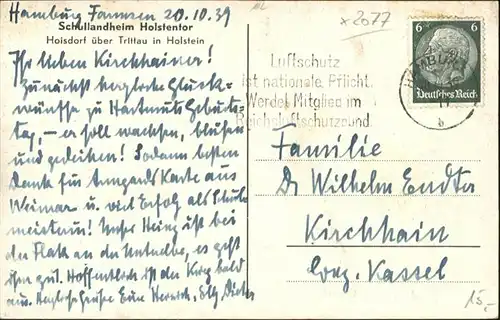 Hamburg Farmsen 20.10.39
Schullandheim Holstentor
Hoisdorf über Trittau in Holstein
Ihr lieben Kirchhainer!
Zunächst herzliche Glück-
wünsche zu Hartmuts Geburts-
tag, – er soll wachsen, blühen
und gedeihen! Sodann besten
Dank für Irmgards Karte aus
Weimar u. viel Erfolg als Schul
meisterin! Unser Heinz ist bei
der Flak an der Unterelbe, es geht
ihm gut. Hoffentlich ist der Krieg bald
aus. Herzliche Grüsse Eure Elly Dieter
x 2077
Luftschutz
ist nationale Pflicht.
Werdet Mitglied im
Reichsluftschutzbund
HAMBURG
b
6 6
Deutsches Reich
Familie
Dr Wilhelm
Kirchhain
Kassel
15,-